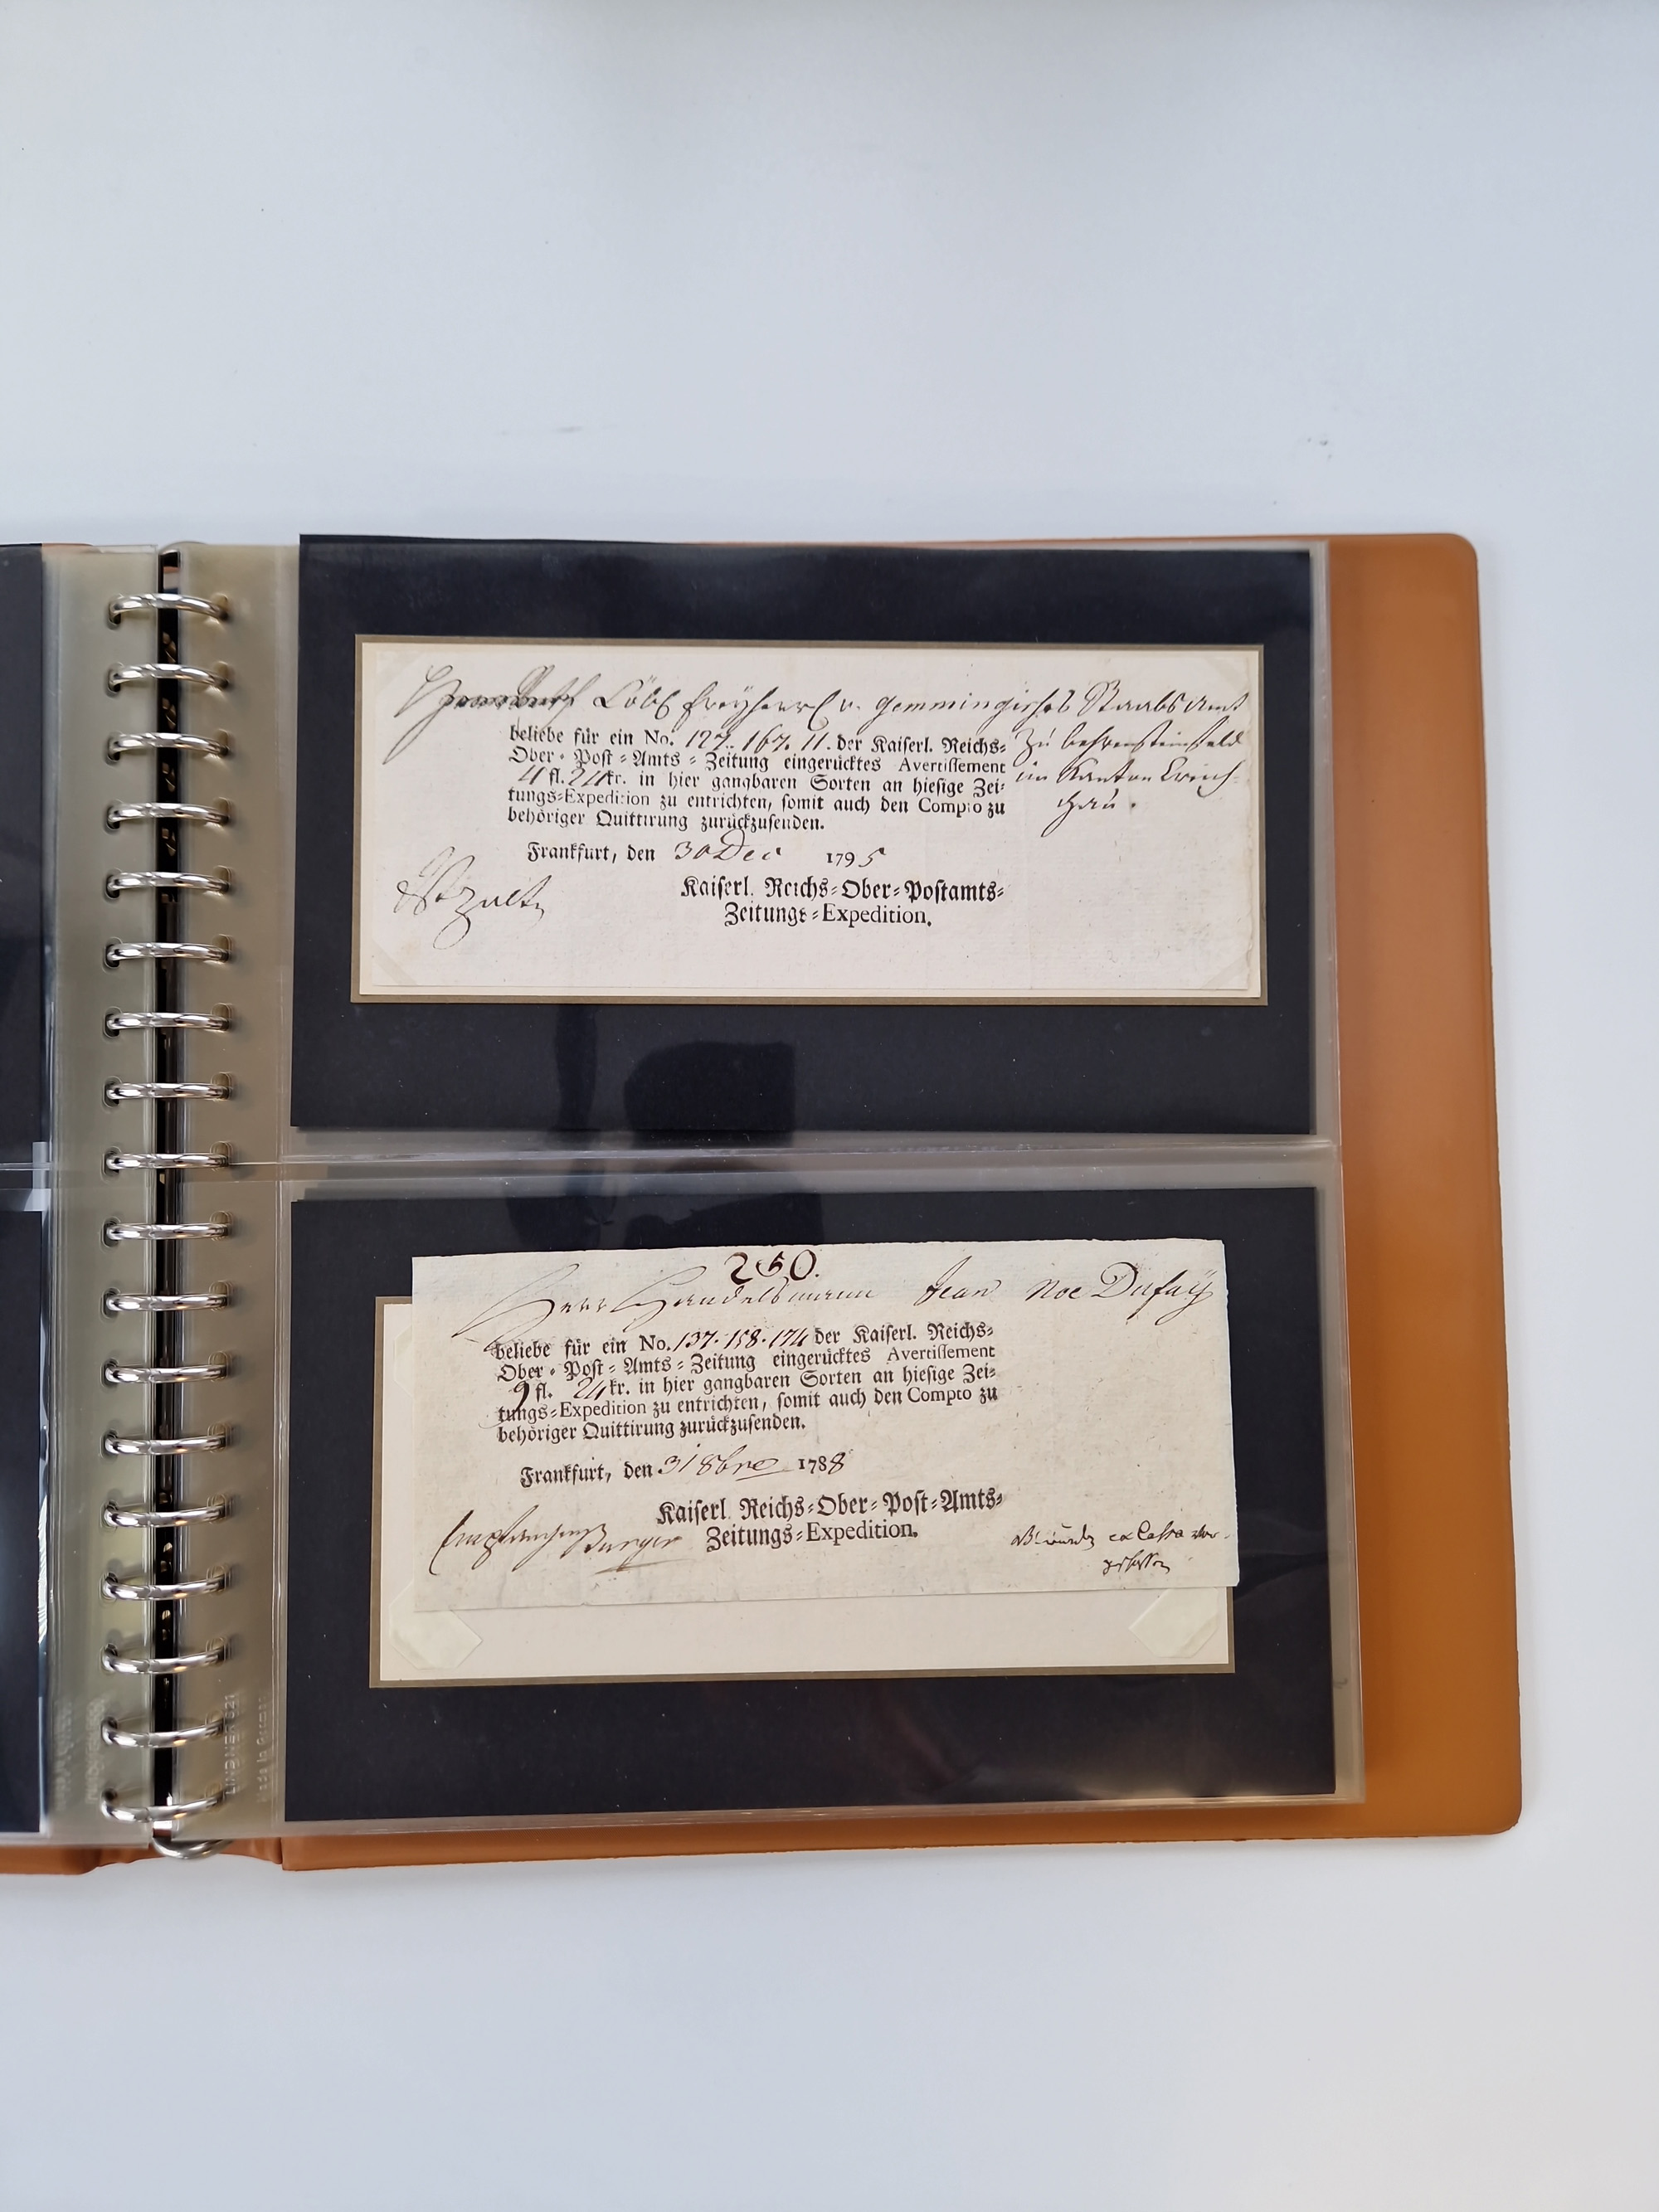 Löbl freyherrl v. gemmingisches Staabsamt
beliebe für ein No. 127. 167. 11. der Kaiserl. Reichs=
zu
Ober=Post=Amts=Zeitung eingerücktes Avertissement
4 fl. 24 kr. in hier gangbaren Sorten an hiesige Zei=
im Kanton Creich=
tungs=Expedition zu entrichten, somit auch den Compto zu
gau.
behöriger Quittirung zurückzusenden.
Frankfurt, den 30 Dec 1795
Kaiserl. Reichs=Ober=Postamts=
Zeitungs=Expedition.
250.
Herr Handelsmann Jean Noe Dufaÿ
beliebe für ein No. 137. 158. 174 der Kaiserl. Reichs=
Ober=Post=Amts=Zeitung eingerücktes Avertissement
9 fl. 24 kr. in hier gangbaren Sorten an hiesige Zei=
tungs=Expedition zu entrichten, somit auch den Compto zu
behöriger Quittirung zurückzusenden.
Frankfurt, den 31 8bre 1788
Kaiserl. Reichs=Ober=Post=Amts=
Zeitungs=Expedition.
Burger
ex Cassa vor=
LINDNER 821
Made in German